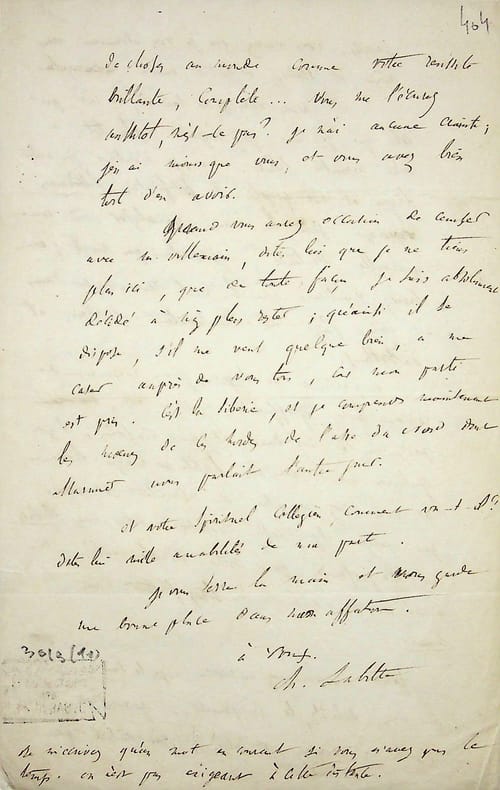 404
de choses au monde comme votre réussite
brillante, complète... Vous me l'écrirez
aussitôt, n'est-ce pas? je n'ai aucune crainte;
j'en ai moins que vous, et vous avez bien
tort d'en avoir.
Quand vous aurez occasion de causer
avec M. Villemain, dites lui que je ne tiens
plus ici, que de toute façon je suis absolument
décidé à n'y plus rester; qu'ainsi il se
dispose, s'il me veut quelque bien, à me
caser auprès de vous tous, car mon parti
est pris. C'est la Sibérie, et je comprends maintenant
les mœurs de ces hordes de l'Asie du nord dont
nous parlait l'autre jour.
et votre spirituel collégien, comment va-t-il?
dites lui mille amabilités de ma part.
je vous serre la main et vous garde
une bonne place dans mon affection.
à vous.
Ch. Labitte
3013 (10)
ne m'écrivez qu'un mot en courant si vous n'avez pas le
temps. on n'est pas exigeant à cette distance.